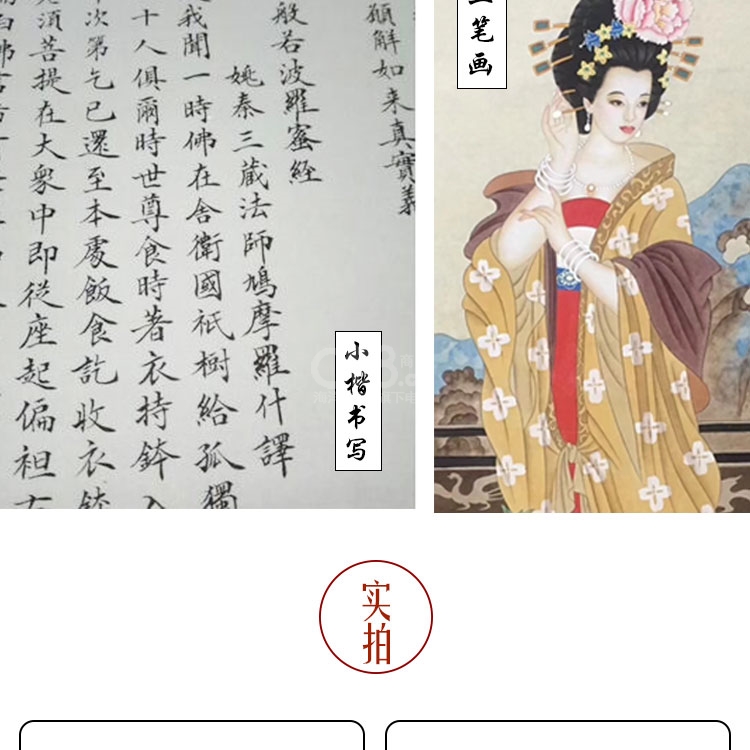 願解如来真實義
般若波羅蜜經
姚秦三藏法師鳩摩羅什譯
我聞一時佛在舍衛國祇樹給孤獨
十人俱爾時世尊食時著衣持鉢入
次第乞已還至本處飯食訖收衣鉢
須菩提在大眾中即從座起偏袒右
白佛言
小楷书写
笔画
实拍